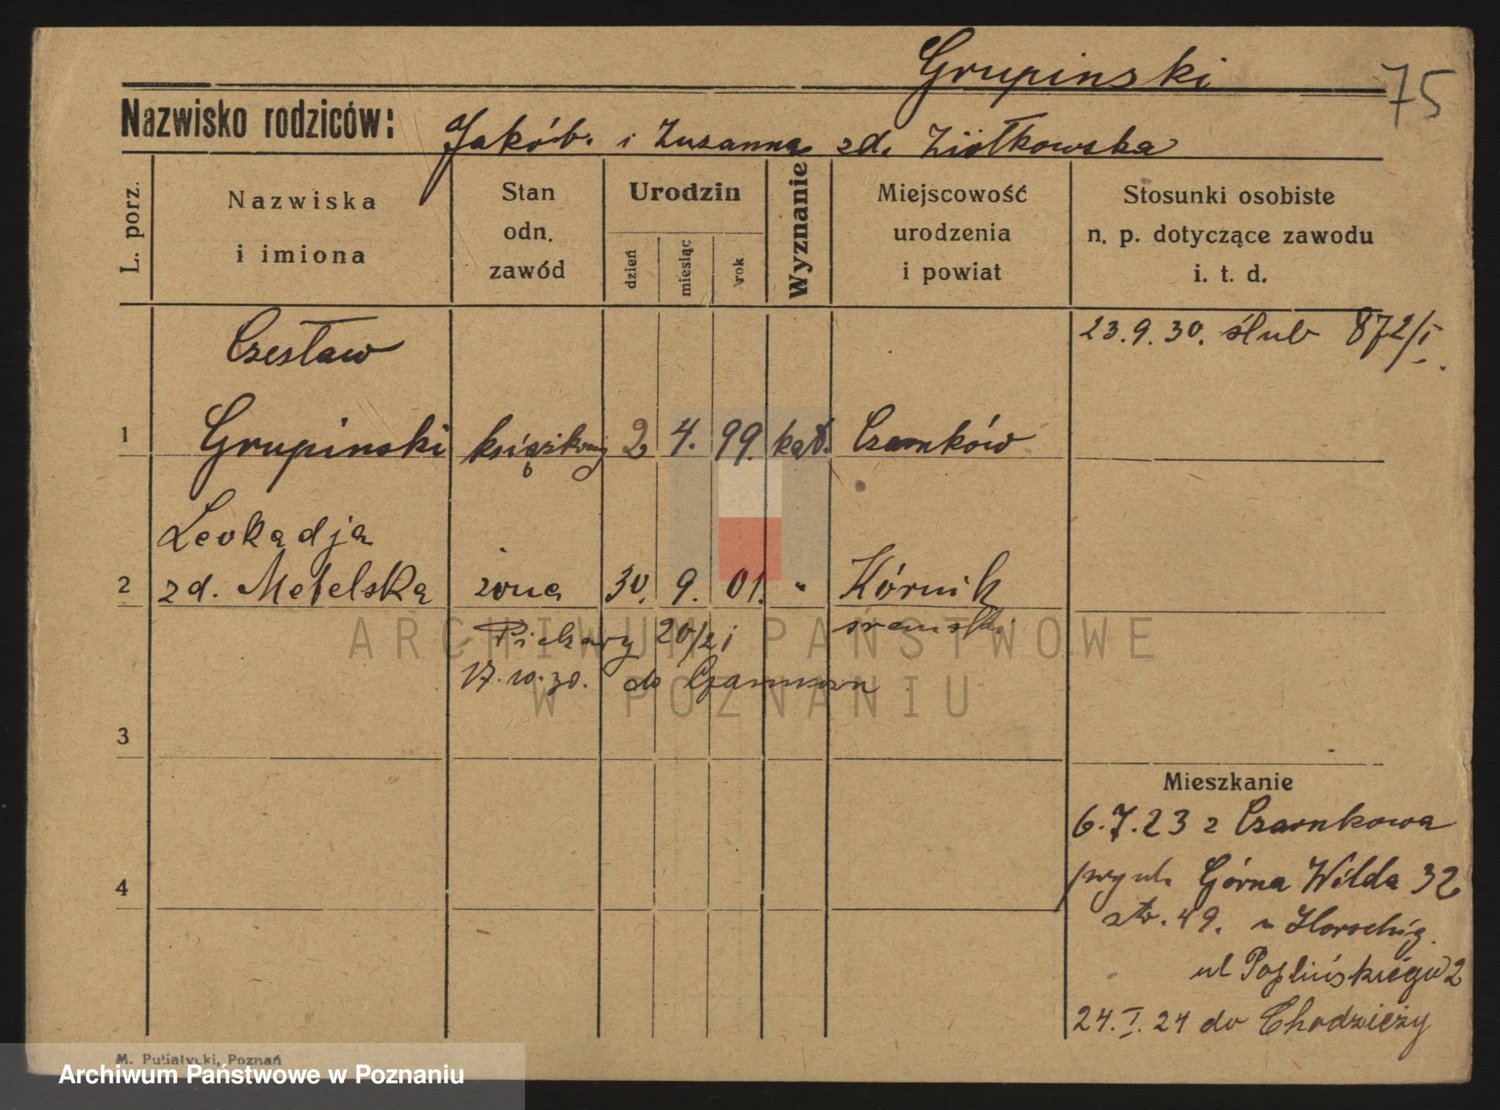 Grupinski
75
Nazwisko rodziców: Jakób. i Zuzanna zd. Ziółkowska
L. porz.
Nazwiska i imiona
Stan odn. zawód
Urodzin
dzień
miesiąc
rok
Wyznanie
Miejscowość urodzenia i powiat
Stosunki osobiste n. p. dotyczące zawodu i. t. d.
Czesław
23.9.30. ślub 872/I.
1 Grupinski książkowy 2 4. 99. kat. Czarnków
Leokadja
2 zd. Metelska żona 30. 9. 01. " Kórnik
Piekary 20/21 śremski
17.10.30. do Czarnkowa
3
Mieszkanie
6.7.23 z Czarnkowa
4
Górna Wilda 32
str. 49.
ul Poplińskiego 2
24.I.24 do Chodzieży
ARCHIWUM PAŃSTWOWE
W POZNANIU
M. Putiatycki, Poznań
Archiwum Państwowe w Poznaniu